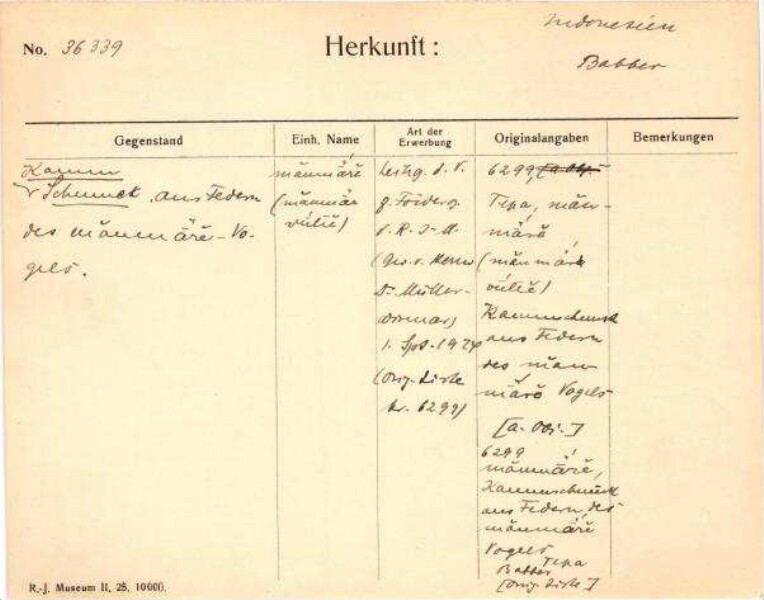 No. 36339
Herkunft:
Indonesien
Babber
Gegenstand
Einh. Name
Art der Erwerbung
Originalangaben
Bemerkungen
Kamm
Schmuck, aus Federn
des männärĕ-Vo-
gels.
männärĕ
(männär
vulic)
Leihg. d. V.
z. Förderg.
d. R-J-M.
(Ges. v. Herrn
Dr Müller-
Wismar)
1. Spt. 1924
(Orig. Liste
Nr. 6299)
6299, [a. Obj.
Tepa, män-
märŏ
(män märĕ
vulic)
Kammschmuck
aus Federn
des män
märŏ Vogels
[a. Obj.]
6299
männärĕ,
Kammschmuck
aus Federn des
männärĕ
Vogels
Tepa
Babber
[Orig. Liste]
R.-J. Museum II, 25, 10000.